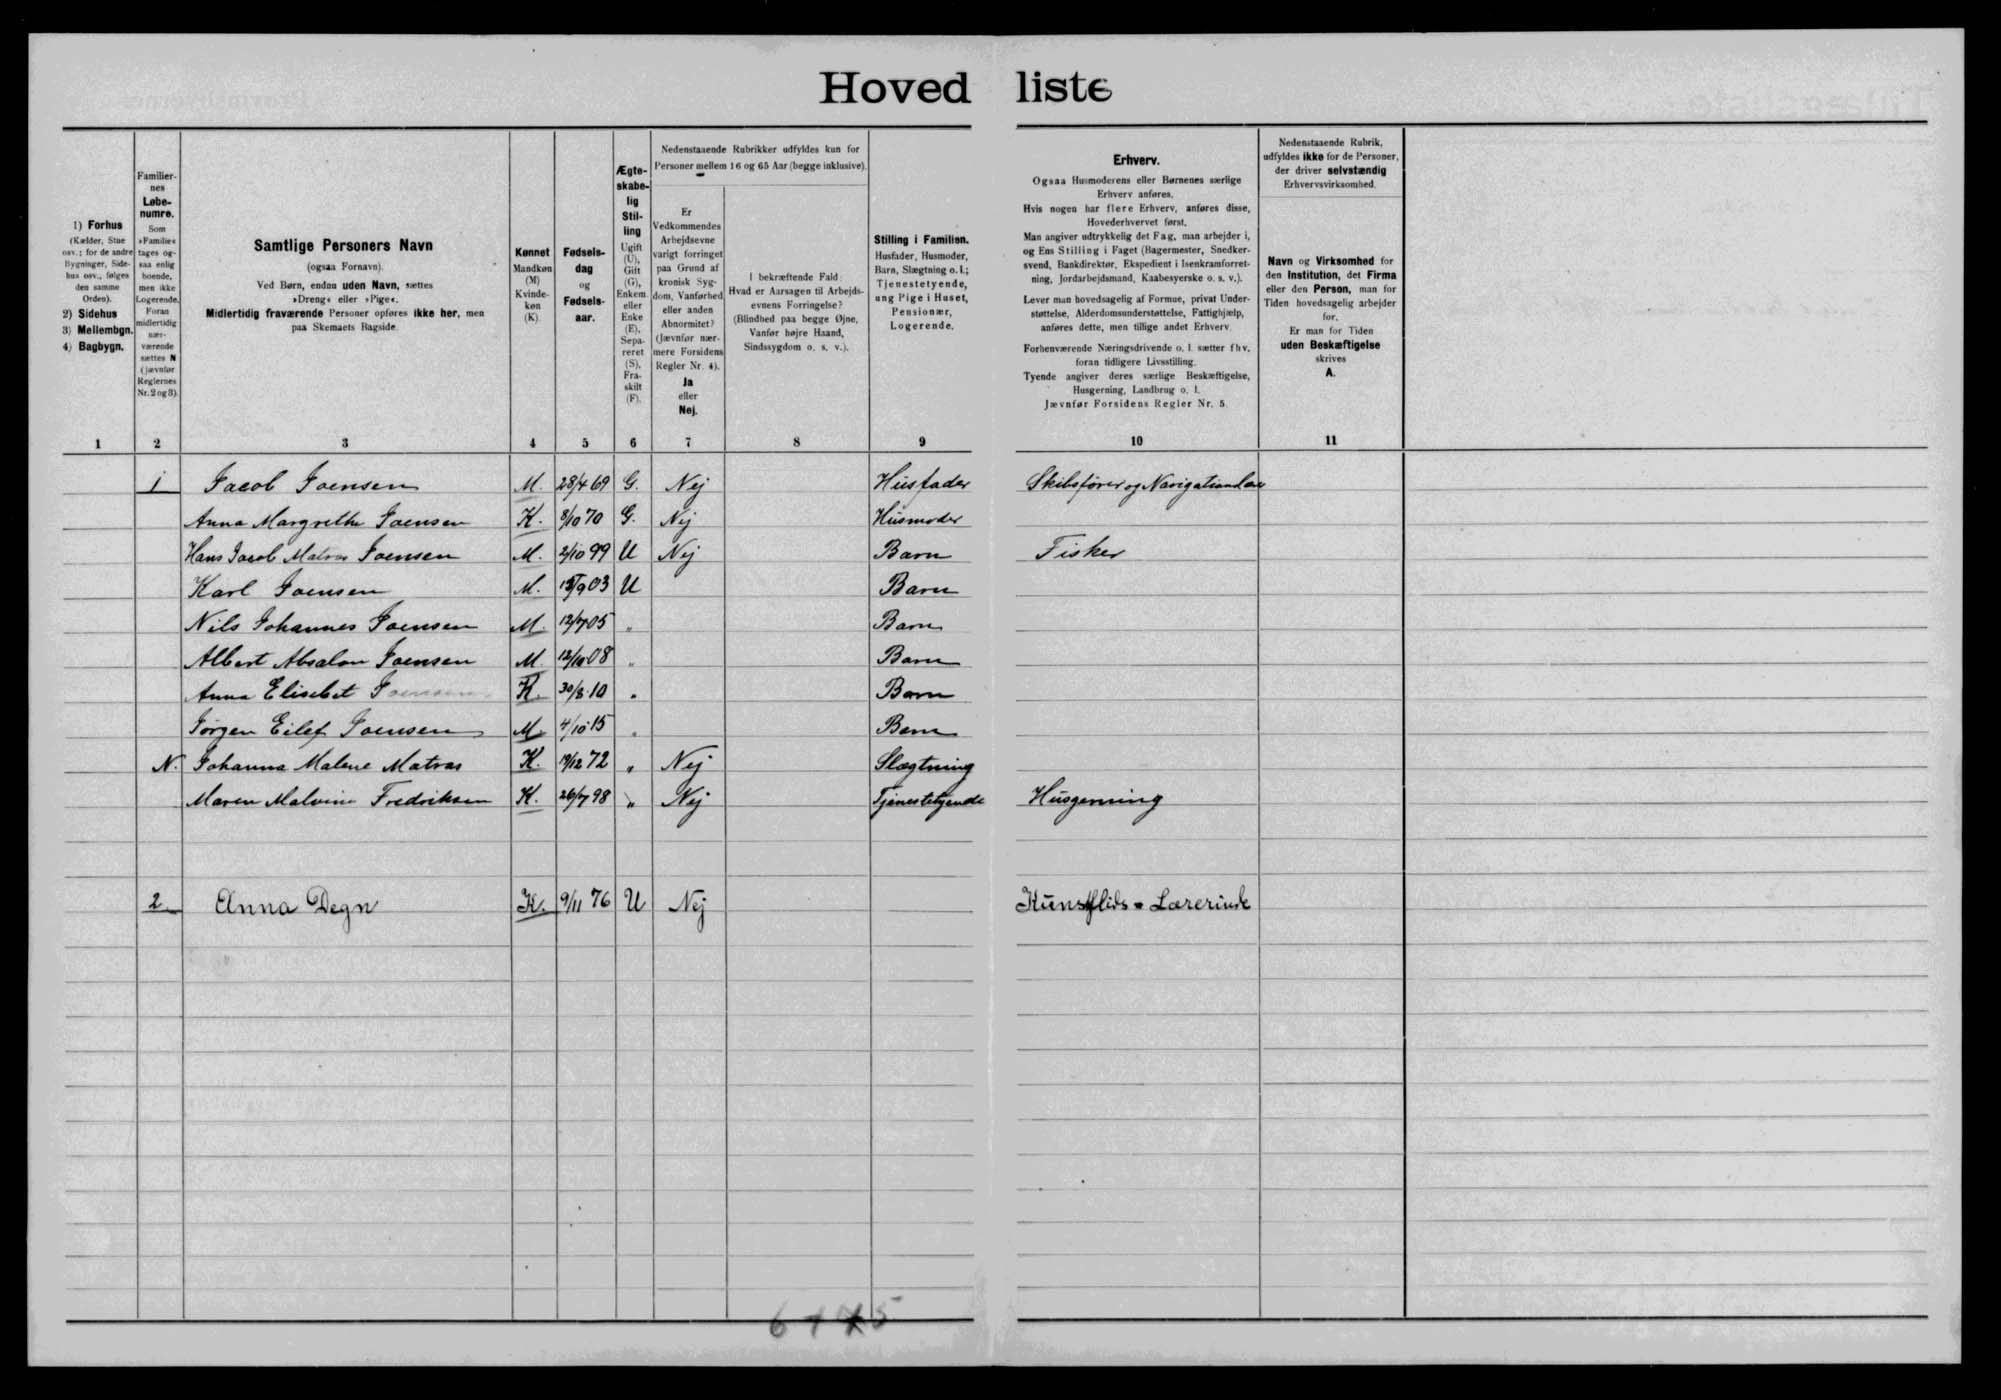 Hovedliste
1) Forhus
(Kælder, Stue
osv.; for de andre
Bygninger, Side-
hus osv., følges
den samme
Orden).
2) Sidehus
3) Mellembgn.
4) Bagbygn.
Familier-
nes
Løbe-
numre.
Som
»Familie«
tages og-
saa enlig
boende,
men ikke
Logerende.
Foran
midlertidig
nær-
værende
sættes N
(jævnfør
Reglernes
Nr. 2 og 3).
Samtlige Personers Navn
(ogsaa Fornavn).
Ved Børn, endnu uden Navn, sættes
»Dreng« eller »Pige«.
Midlertidig fraværende Personer opføres ikke her, men
paa Skemaets Bagside.
Kønnet
Mandkøn
(M)
Kvinde-
køn
(K).
Fødsels-
dag
og
Fødsels-
aar.
Ægte-
skabe-
lig
Stil-
ling
Ugift
(U),
Gift
(G),
Enkem.
eller
Enke
(E),
Sepa-
reret
(S),
Fra-
skilt
(F).
Nedenstaaende Rubrikker udfyldes kun for
Personer mellem 16 og 65 Aar (begge inklusive).
Er
Vedkommendes
Arbejdsevne
varigt forringet
paa Grund af
kronisk Syg-
dom, Vanførhed
eller anden
Abnormitet?
(Jævnfør nær-
mere Forsidens
Regler Nr. 4).
Ja
eller
Nej.
I bekræftende Fald:
Hvad er Aarsagen til Arbejds-
evnens Forringelse?
(Blindhed paa begge Øjne,
Vanfør højre Haand,
Sindssygdom o. s. v.).
Stilling i Familien.
Husfader, Husmoder,
Barn, Slægtning o. l.;
Tjenestetyende,
ung Pige i Huset,
Pensionær,
Logerende.
Erhverv.
Ogsaa Husmoderens eller Børnenes særlige
Erhverv anføres.
Hvis nogen har flere Erhverv, anføres disse,
Hovederhvervet først.
Man angiver udtrykkelig det Fag, man arbejder i,
og Ens Stilling i Faget (Bagermester, Snedker-
svend, Bankdirektør, Ekspedient i Isenkramforret-
ning, Jordarbejdsmand, Kaabesyerske o. s. v.).
Lever man hovedsagelig af Formue, privat Under-
støttelse, Alderdomsunderstøttelse, Fattighjælp,
anføres dette, men tillige andet Erhverv.
Forhenværende Næringsdrivende o. l. sætter fhv.
foran tidligere Livsstilling.
Tyende angiver deres særlige Beskæftigelse,
Husgerning, Landbrug o. l.
Jævnfør Forsidens Regler Nr. 5.
Nedenstaaende Rubrik,
udfyldes ikke for de Personer,
der driver selvstændig
Erhvervsvirksomhed.
Navn og Virksomhed for
den Institution, det Firma
eller den Person, man for
Tiden hovedsagelig arbejder
for.
Er man for Tiden
uden Beskæftigelse
skrives
A.
1 2 3 4 5 6 7 8 9 10 11
1 Jacob Joensen M. 28/4 69 G. Nej Husfader Skibsfører og Navigationslærer
Anna Margrethe Joensen K. 8/10 70 G. Nej Husmoder
Hans Jacob Matras Joensen M. 2/10 99 U Nej Barn Fisker
Karl Joensen M. /9 03 U Barn
Nils Johannes Joensen M. 12/7 05 " Barn
Albert Absalon Joensen M. 12/10 08 " Barn
Anna Elisebet Joensen K. 30/8 10 " Barn
Jørgen Eilef Joensen M. 4/10 15 " Barn
N. Johanna Malene Matras K. /12 72 " Nej Slægtning
Maren Malvine Fredriksen K. 26/7 98 " Nej Tjenestetyende Husgerning
2 Anna Degn K. 9/11 76 U Nej Kunstflids-Lærerinde